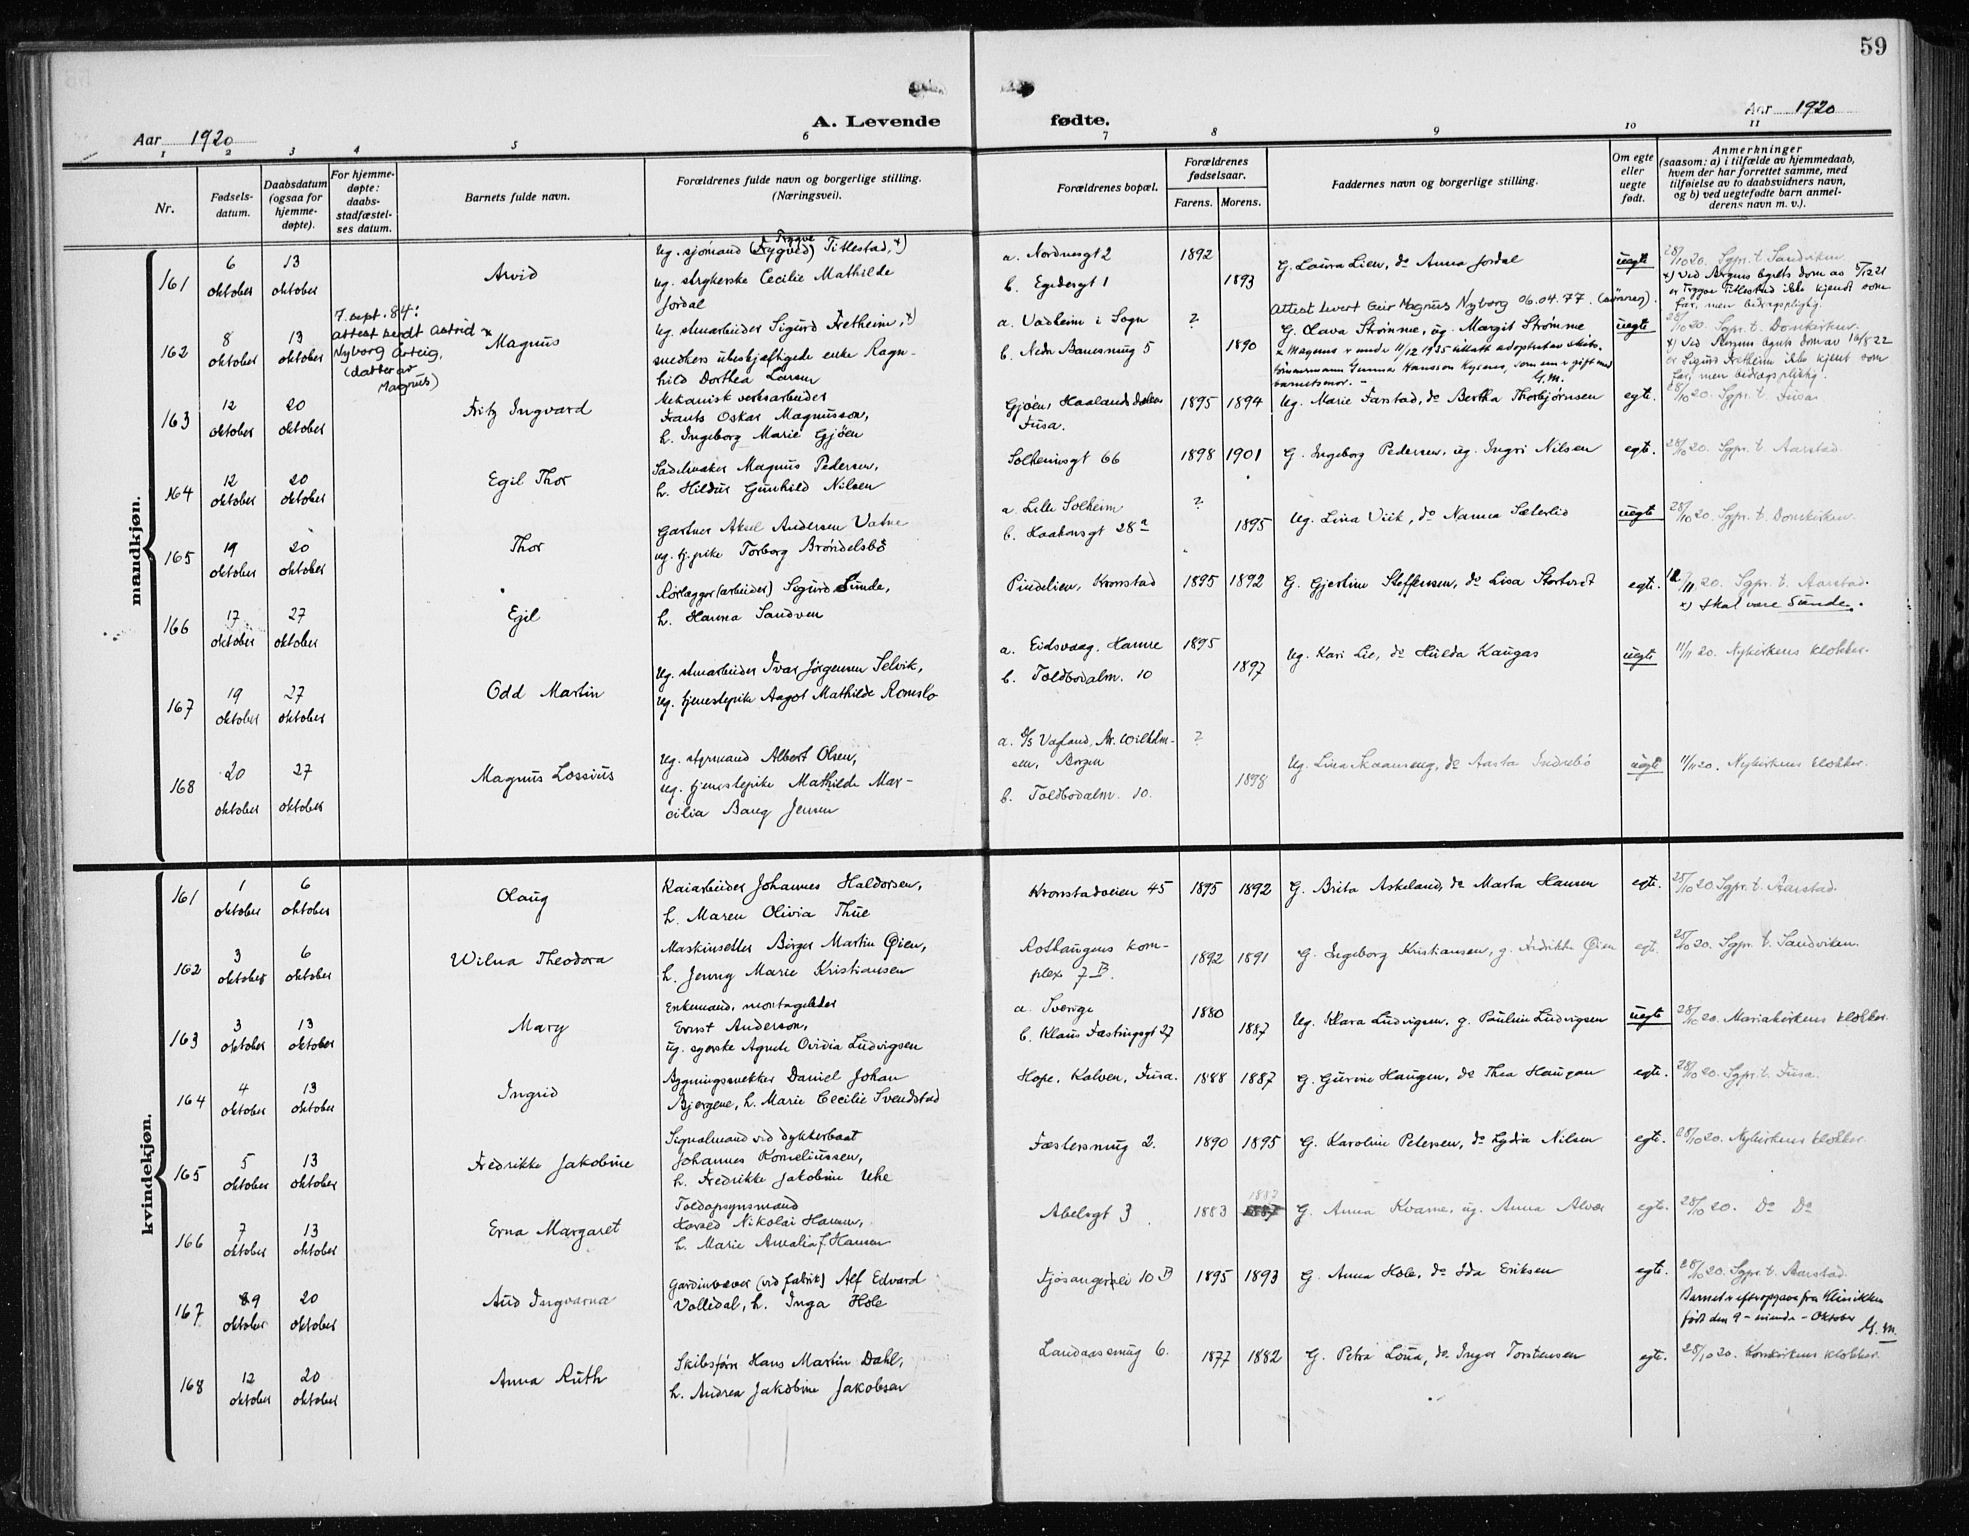 59
Aar 1920
A. Levende
fødte.
Aar 1920
1 2 3 4 5 6 7 8 9 10 11
Nr.
Fødsels-
datum.
Daabsdatum
(ogsaa for
hjemme-
døpte).
For hjemme-
døpte:
daabs-
stadfæstel-
ses datum.
Barnets fulde navn.
Forældrenes fulde navn og borgerlige stilling.
(Næringsvei).
Forældrenes bopæl.
Forældrenes
fødselsaar.
Farens. Morens.
Faddernes navn og borgerlige stilling.
Om egte
eller
uegte
født.
Anmerkninger
(saasom: a) i tilfælde av hjemmedaab,
hvem der har forrettet samme, med
tilføielse av to daabsvidners navn,
og b) ved uegtefødte barn anmel-
derens navn m. v.).
mandkjøn.
161
6 oktober
13 oktober
Arvid
Trygve
ug. sjømand (Trygve) Titlestad, x)
ug. strykerske Cecilie Mathilde
Jordal
a. Nordnesgt 2
b. Egedesgt 1
1892
1893
G. Laura Lien, do Anna Jordal
uegte
28/10 20. Sgpr. t. Sandviken
x) Ved Bergens byrets dom av
er Trygve Titlestad ikke kjendt som
far, men bidragspligtig.
162
8 oktober
13 oktober
7. sept. 84:
attest sendt Astrid
Nyborg Arteig,
(datter av
Magnus)
x Magnus
ug. stuarbeider Sigurd Fretheim, x)
snedkers ubeskjæftigede enke Ragn-
hild Dorthea Larsen
a. Vadheim i Sogn
b. Nedr. Banesmug 5
?
1890
Attest levert Geir Magnus Nyborg 06.04.77.
G. Olava Strømme, ug. Margit Strømme
x Magnus er under 11/12 1935 tillatt adoptert av skibs-
tømmermann Gunnar Hansson Kysnes, som nu er gift med
barnets mor. –
G.M.
uegte
28/10 20. Sgpr. t. Domkirken.
x) Ved Bergens byrets dom av 16/8 22
er Sigurd Fretheim ikke kjent som
far, men bidragspligtig.
163
12 oktober
20 oktober
Fritz Ingvard
Mekanisk verksarbeider
Frants Oskar Magnusson,
h. Ingeborg Marie Gjøen
Gjøen, Haalandsdalen
Fusa.
1895 1894
Ug. Marie Farstad, do Bertha Thorbjørnsen
egte.
28/10 20. Sgpr. t. Fusa
164
12 oktober
20 oktober
Egil Thor
Sadelmaker Magnus Pedersen,
h. Hildur Gunhild Nilsen
Solheimsgt 66
1898 1901
G. Ingeborg Pedersen, ug. Ingri Nilsen
egte.
28/10 20. Sgpr. t. Aarstad.
165
19 oktober
20 oktober
Thor
Gartner Aksel Andersen Vatne
ug. tj. pike Torborg Brøndelsbø
a. Lille Solheim
b. Haakonsgt 28 a
?
1895
Ug. Lina Viik, do Nanna Sæterlid
uegte
28/10 20. Sgpr. t. Domkirken.
166
17 oktober
27 oktober
Egil
Rørlægger (arbeider) Sigurd Sunde,
h. Hanna Sandven
Pindelien, Kronstad
1895 1892
G. Gjertine Steffensen, do Lisa Stortvedt
egte.
/11 20. Sgpr. t. Aarstad.
x) Skal være Sunde.
167
19 oktober
27 oktober
Odd Martin
Ug. stuarbeider Ivar Jørgensen Selvik,
ug. tjenestepike Aagot Mathilde Romslo
a. Eidsvaag, Hamre
b. Toldbodalm. 10
1895
1897
Ug. Kari Lie, do Hulda Kaugas
uegte
11/11 20. Nykirkens klokker.
168
20 oktober
27 oktober
Magnus Lossius
ug. styrmand Albert Olsen,
ug. tjenestepike Mathilde Mar-
cilia Bang Jensen
a. D/S Vafland, Ar. Wilhelm-
sen, Bergen
b. Toldbodalm. 10.
?
1898
Ug. Lina Skaanseng, do Aasta Indrebø
uegte
11/11 20. Nykirkens klokker.
kvindekjøn.
161
1 oktober
6 oktober
Olaug
Kaiarbeider Johannes Haldorsen,
h. Maren Olivia Thue
Kronstadveien 45
1895 1892
G. Brita Askeland, do Marta Hansen
egte.
25/10 20. Sgpr. t. Aarstad.
162
3 oktober
6 oktober
Wilna Theodora
Maskinsetter Birger Martin Øien,
h. Jenny Marie Kristiansen
Rothaugens kom-
plex 7 B.
1892 1891
G. Ingeborg Kristiansen, g. Fredrikke Øien
egte.
25/10 20. Sgpr. t. Sandviken.
163
3 oktober
13 oktober
Mary
Enkemand, montageleder
Ernst Anderson,
ug. syerske Agnete Ovidia Ludvigsen
a. Sverige
b. Klaus Fastingsgt 27
1880
1887
Ug. Klara Ludvigsen, g. Pauline Ludvigsen
uegte
28/10 20. Mariakirkens klokker.
164
4 oktober
13 oktober
Ingrid
Bygningssnekker Daniel Johan
Bjergene, h. Marie Cecilie Svendstad
Hope, Kalven, Fusa.
1888 1887
G. Gurine Haugen, do Thea Haugan
egte.
28/10 20. Sgpr. t. Fusa.
165
5 oktober
13 oktober
Fredrikke Jakobine
Signalmand vid dykkerbaat
Johannes Korneliussen,
h. Fredrikke Jakobine Uhe
Fæstersmug 2.
1890 1895
G. Karoline Petersen, do Lydia Nilsen
egte.
28/10 20. Nykirkens klokker.
166
7 oktober
13 oktober
Erna Margaret
Toldopsynsmand
Harald Nikolai Hansen,
h. Marie Amalia f. Hansen
Abelsgt 3.
1883 1887
G. Anna Kvame, ug. Anna Alvær
egte.
28/10 20. Do Do
167
9 oktober
20 oktober
Aud Ingvarna
Gardinvæver (vid fabrik) Alf Edvard
Vollidal, h. Inga Hole
Fjøsangervei 10 B
1895 1893
G. Anna Hole, do Ida Eriksen
egte.
28/10 20. Sgpr. t. Aarstad.
Barnet er efter opgave fra Klinikken
født den 9 – niende – Oktober
G. M.
168
12 oktober
20 oktober
Anna Ruth
Skibsfører Hans Martin Dahl,
h. Andrea Jakobine Jakobsen
Landaasmug 6.
1877 1882
G. Petra Loua, do Inger Torstensen
egte.
28/10 20. Korskirkens klokker.